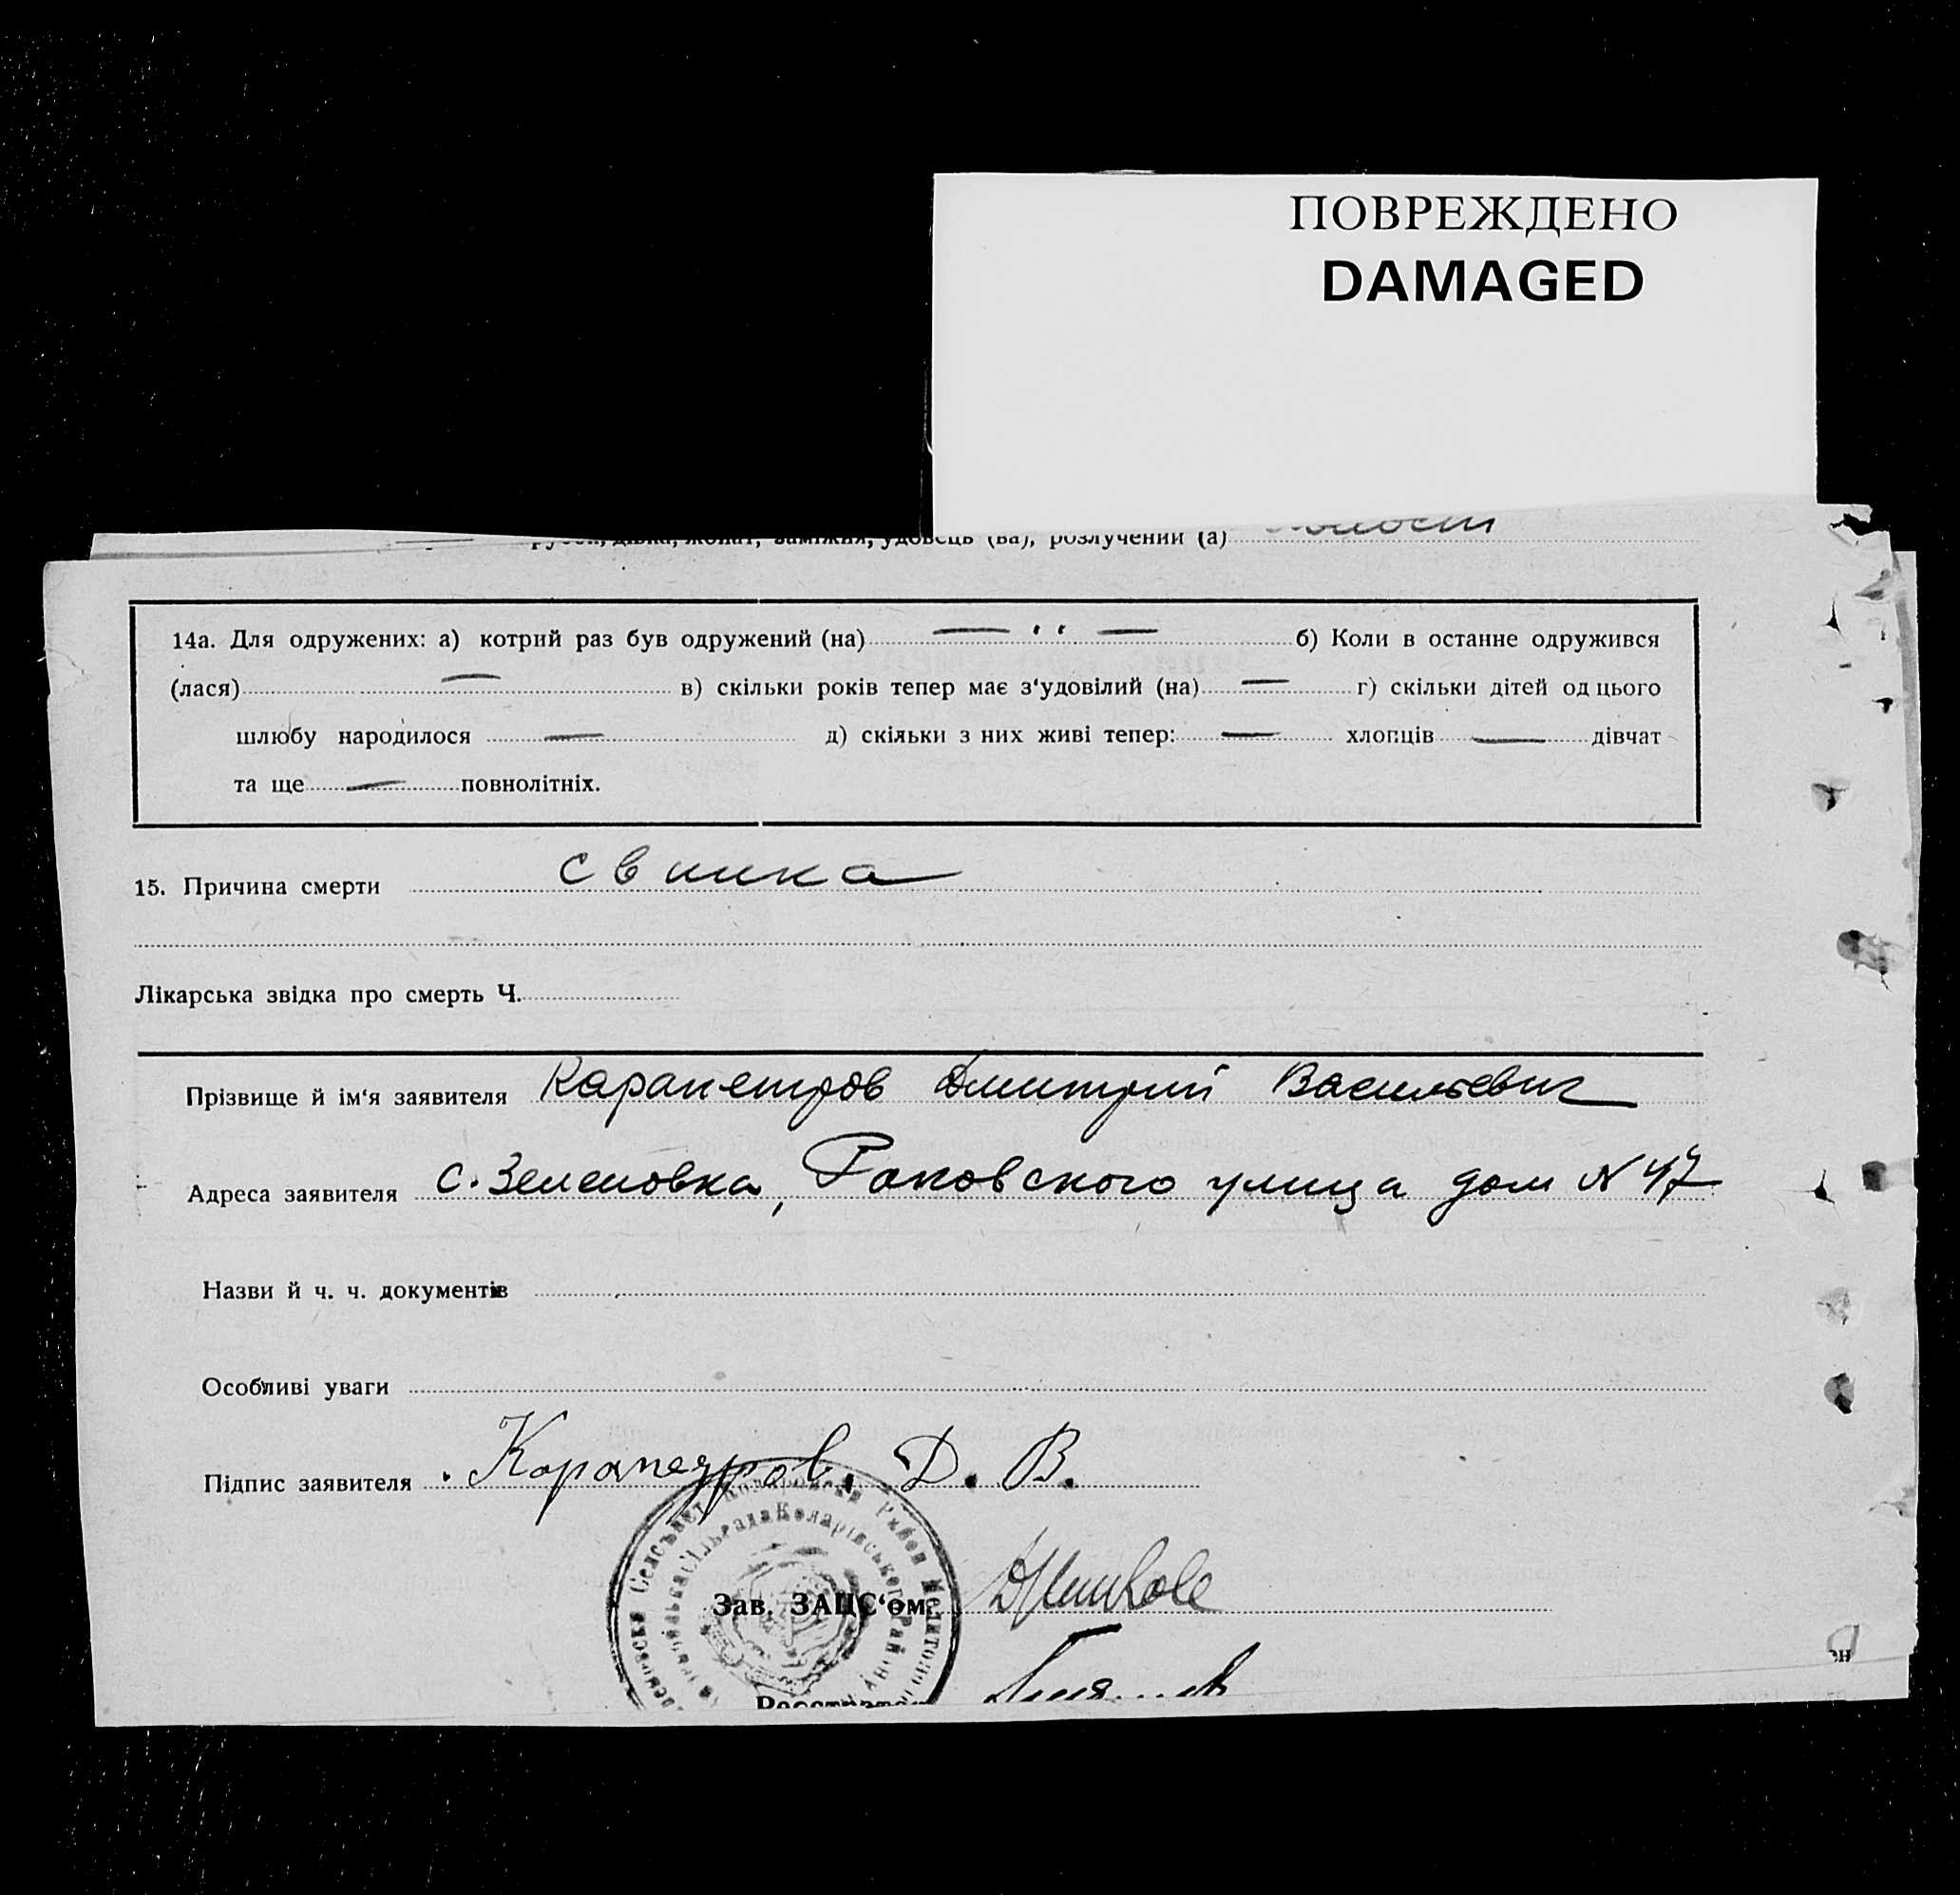 ПОВРЕЖДЕНО
DAMAGED
жонат, заміжня, удовець (ва), розлучений (а)
14а. Для одружених: а) котрий раз був одружений (на) — " — б) Коли в останнє одружився
(лася) — в) скільки років тепер має з'удовілий (на) — г) скільки дітей од цього
шлюбу народилося — д) скільки з них живі тепер: — хлопців — дівчат
та ще — повнолітніх.
15. Причина смерти свинка
Лікарська звідка про смерть Ч.
Прізвище й ім'я заявителя Карапетров Дмитрий Васильевич
Адреса заявителя с. Зеленовка, Раковского улица дом N 47
Назви й ч. ч. документів
Особливі уваги
Підпис заявителя Карапетров, Д. В.
Зав. ЗАЦС'ом